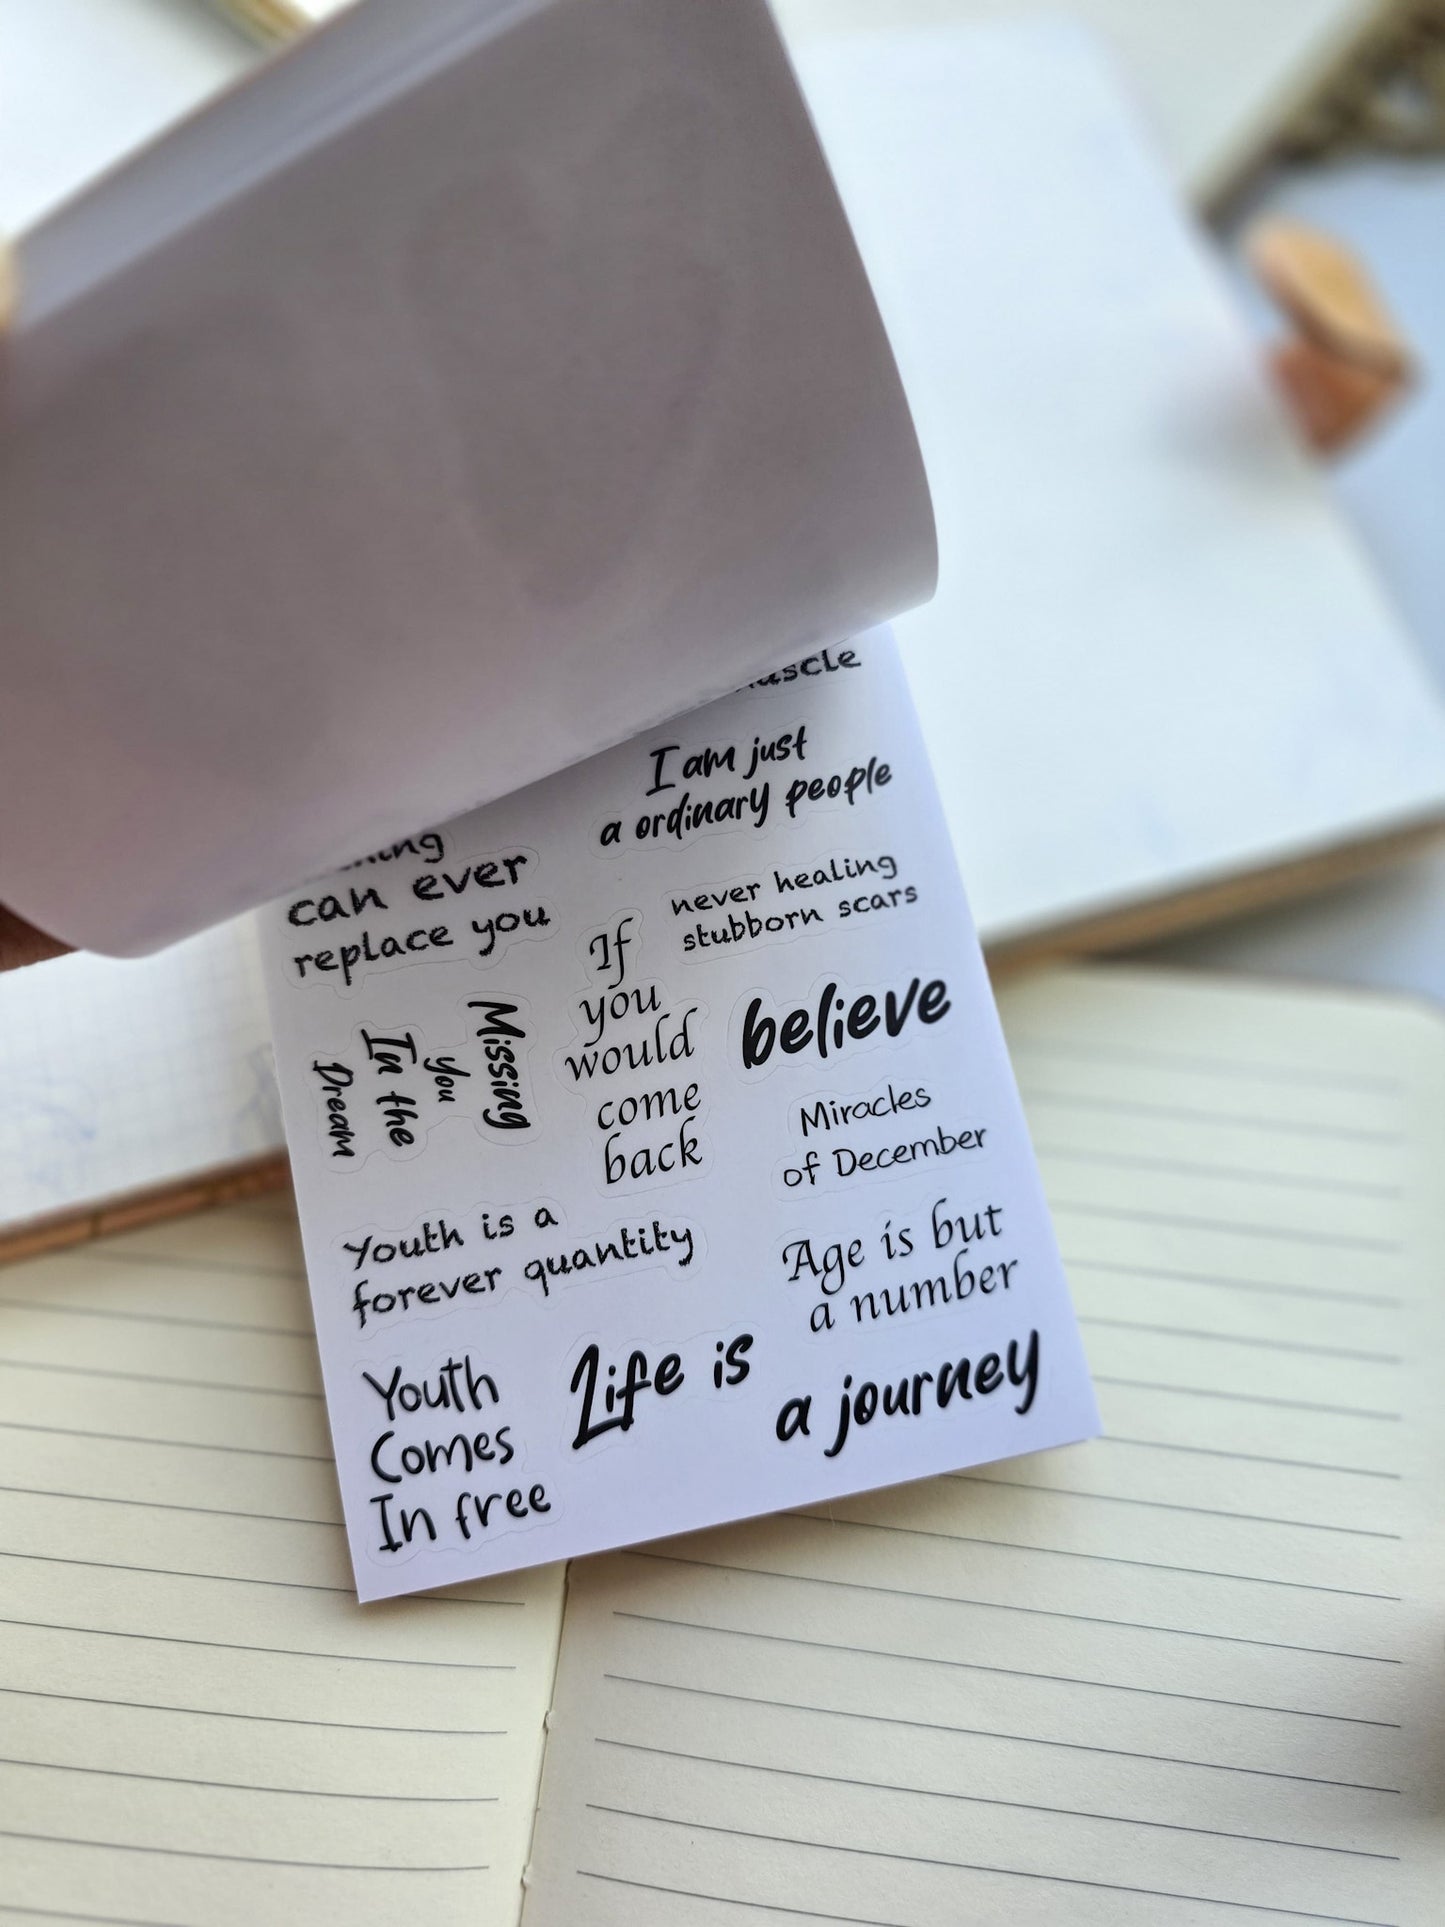 I am just
a ordinary people
can ever
replace you
never healing
stubborn scars
If
you
would
come
back
believe
Missing
you
In the
Dream
Miracles
of December
Youth is a
forever quantity
Age is but
a number
Youth
Comes
In free
Life is
a journey